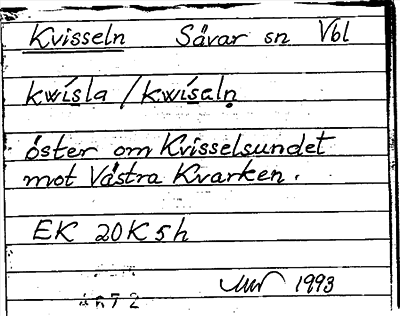 Kvisseln Sävar sn Vbl
kwísla / kwísəln̥
öster om Kvisselsundet
mot Västra Kvarken.
EK 20K 5h
1993